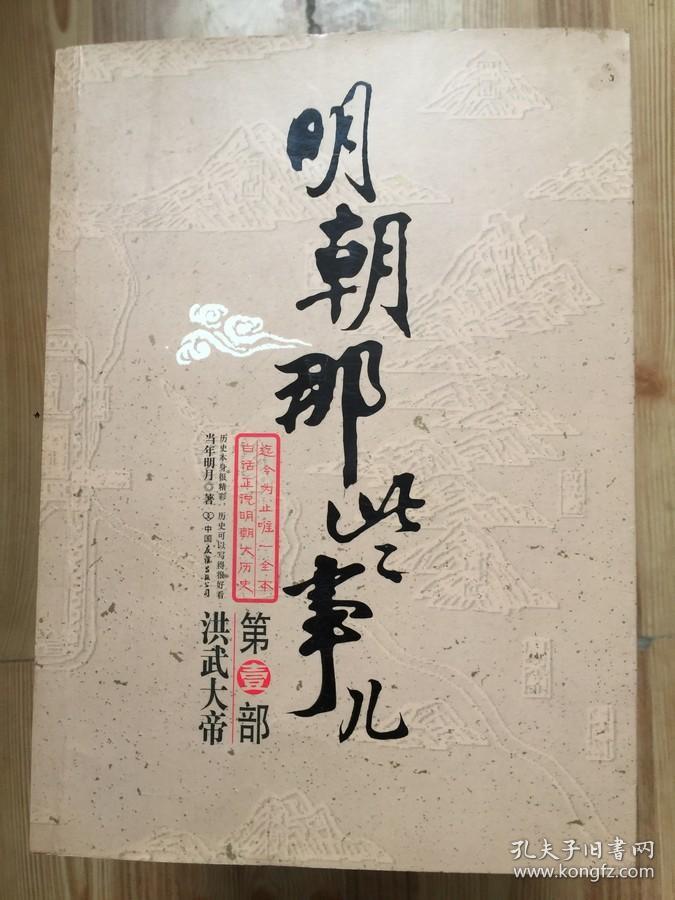 明朝那些事儿
迄今为止唯一全本
白话正说明朝大历史
历史本身很精彩,历史可以写得很好看
当年明月◎著
中国友谊出版公司
第壹部
洪武大帝
孔夫子旧书网
www.kongfz.com